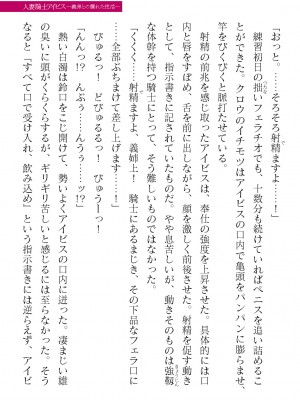 人妻騎士アイビス―義弟との爛れた性活―
「おっと。……そろそろ射精ますよ……！」
練習初日の拙いフェラチオでも、十数分も続けていればペニスを追い詰めるこ
とができた。クロウのイチモツはアイビスの口内で亀頭をパンパンに膨らませ、
竿をびくびくと脈打たせている。
射精の前兆を感じ取ったアイビスは、奉仕の強度を上昇させた。具体的には口
内と唇をすぼめ、舌を前に出しながら、顔を激しく前後させた。射精を促す動き
として、指示書きに記されていたものだ。やや息苦しいが、動きそのものは強靱
な体幹を持つ騎士にとって、そう難しいものではない。
「くくく……！　射精ますよ、義姉上！　騎士にあるまじき、その下品なフェラ口に
……全部ぶちまけて差し上げます……！」
びゅるっ！　どびゅるるっ！　びゅうーっ！
「んんっ!?　んぶぅ……んうぅ……ッ!?」
熱い白濁は鈴口をこじ開けて、勢いよくアイビスの口内に迸った。凄まじい雄
の臭いに頭がくらくらするが、ギリギリ苦しいと感じるには至らなかった。そう
なると「すべて口で受け入れ、飲み込め」という指示書きには逆らえず、アイビ